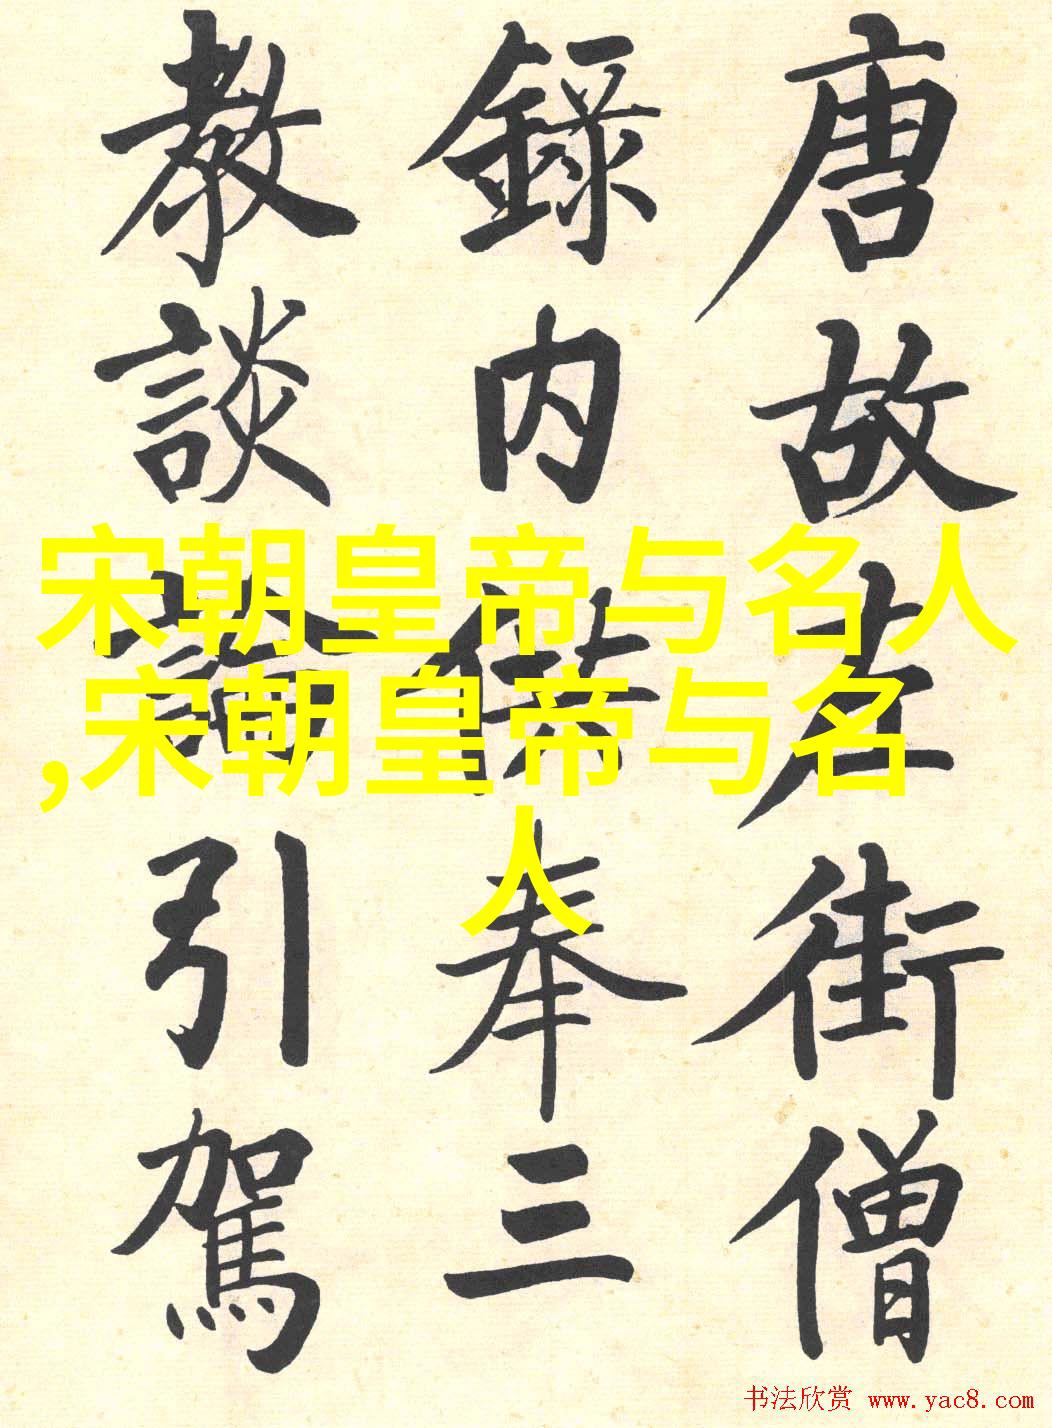 唐故左街僧
錄内供奉三
教談論引駕
宋朝皇帝与名人
,宋朝皇帝与名
人
书法欣赏 www.yac8.com